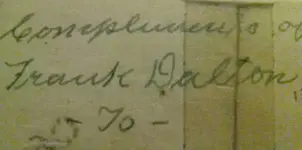 Compliments of
Frank Dalton
To -